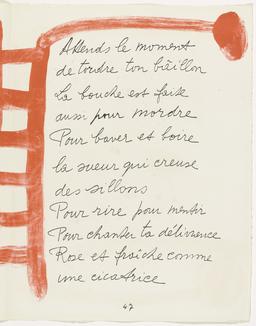 Attends le moment
de tordre ton bâillon
La bouche est faite
aussi pour mordre
Pour baver et boire
la sueur qui creuse
des sillons
Pour rire pour mentir
Pour chanter ta délivrance
Rose et fraîche comme
une cicatrice
47